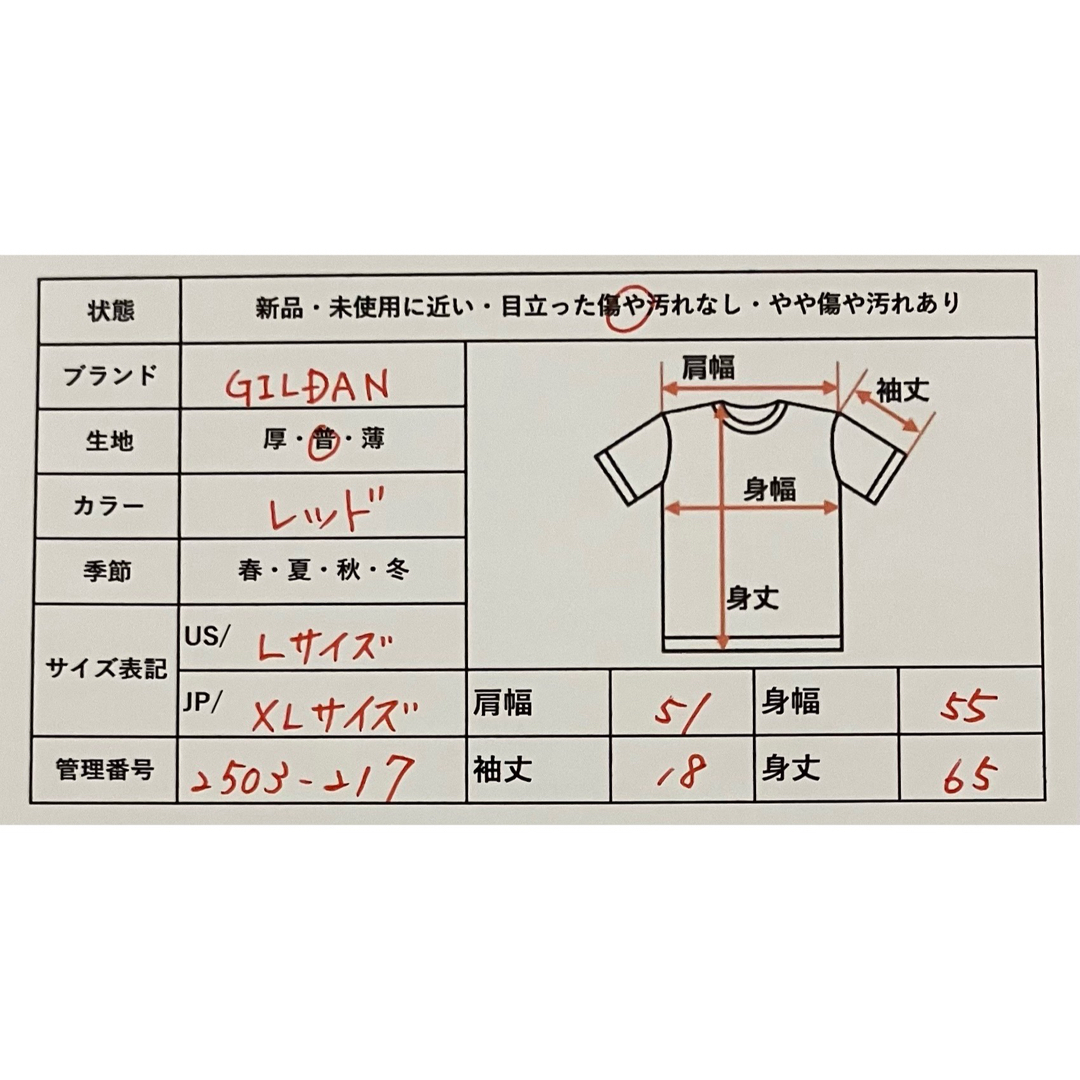 状態 新品・未使用に近い・目立った傷や汚れなし・やや傷や汚れあり
ブランド GILDAN
生地 厚・普・薄
カラー レッド
季節 春・夏・秋・冬
サイズ表記
US/ Lサイズ
JP/ XLサイズ
管理番号 2503-217
肩幅
袖丈
身幅
身丈
肩幅 51 身幅 55
袖丈 18 身丈 65